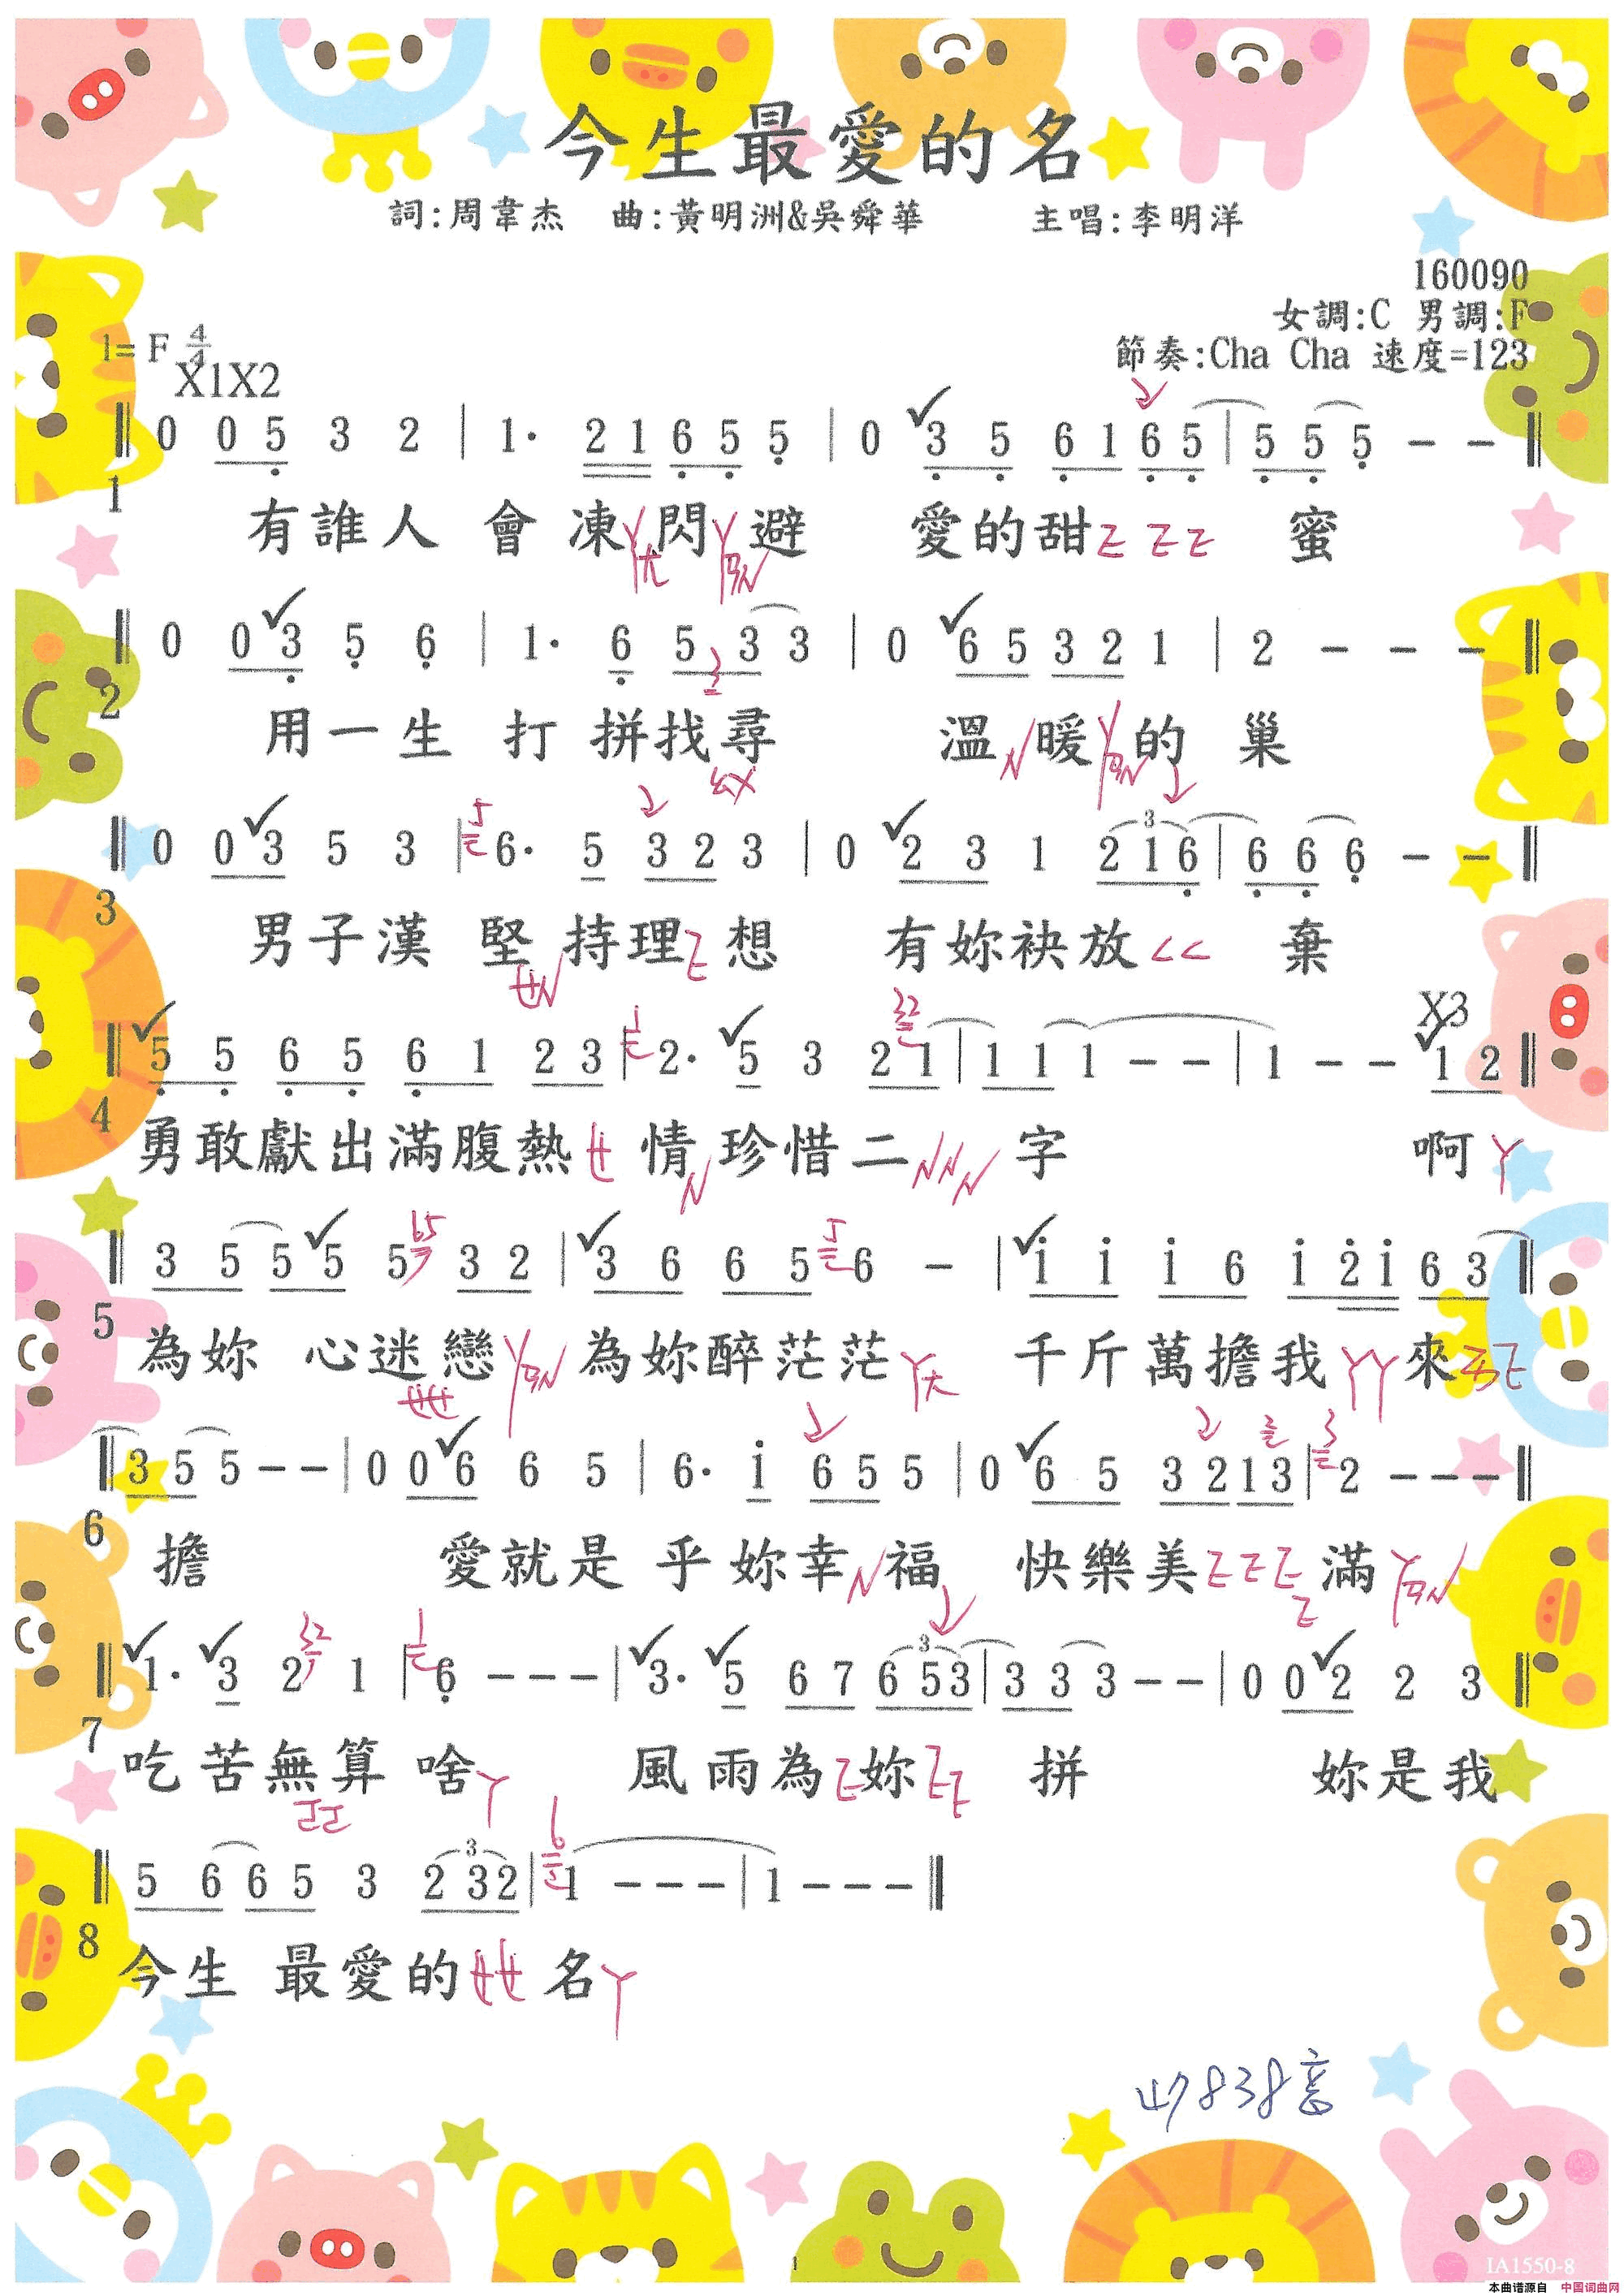 今生最愛的名
詞:周韋杰 曲:黃明洲&吳舜華 主唱:李明洋
160090
女調:C 男調:F
1=F 4/4
節奏:Cha Cha 速度=123
X1X2
0 0 5 3 2 | 1· 2 1 6 5 5 | 0 3 5 6 1 6 5 | 5 5 5 - -
1
有誰人 會 凍ㄚ閃ㄚ避 愛的甜ㄛㄛㄛ 蜜
ㄚㄤ ㄚㄢ
0 0 3 5 6 | 1· 6 5 3 3 | 0 6 5 3 2 1 | 2 - - -
2
用一生 打 拼找尋 溫 暖 的 巢
0 0 3 5 3 | 6· 5 3 2 3 | 0 2 3 1 2 1 6 | 6 6 6 - -
3
男子漢 堅 持理 想 有妳袂放ㄑㄑ 棄
X3
5 5 6 5 6 1 2 3 | 2· 5 3 2 1 | 1 1 1 - - | 1 - - 1 2
4
勇敢獻出滿腹熱ㄝ 情 珍惜二 字 啊ㄚ
3 5 5 5 5 3 2 | 3 6 6 5 6 - | i i i 6 i 2 i 6 3
5
為妳 心迷戀 為妳醉茫茫 千斤萬擔我ㄚㄚ來
3 5 5 - - | 0 0 6 6 5 | 6· i 6 5 5 | 0 6 5 3 2 1 3 | 2 - - -
6
擔 愛就是 乎 妳幸 福 快樂美 滿
1· 3 2 1 | 6 - - - | 3· 5 6 7 6 5 3 | 3 3 3 - - | 0 0 2 2 3
7
吃 苦無算 啥ㄚ 風 雨為 妳 拼 妳是我
5 6 6 5 3 2 3 2 | 1 - - - | 1 - - -
8
今生 最愛的ㄝㄝ 名ㄚ
1
IA1550-8
本曲谱源自 中国词曲网